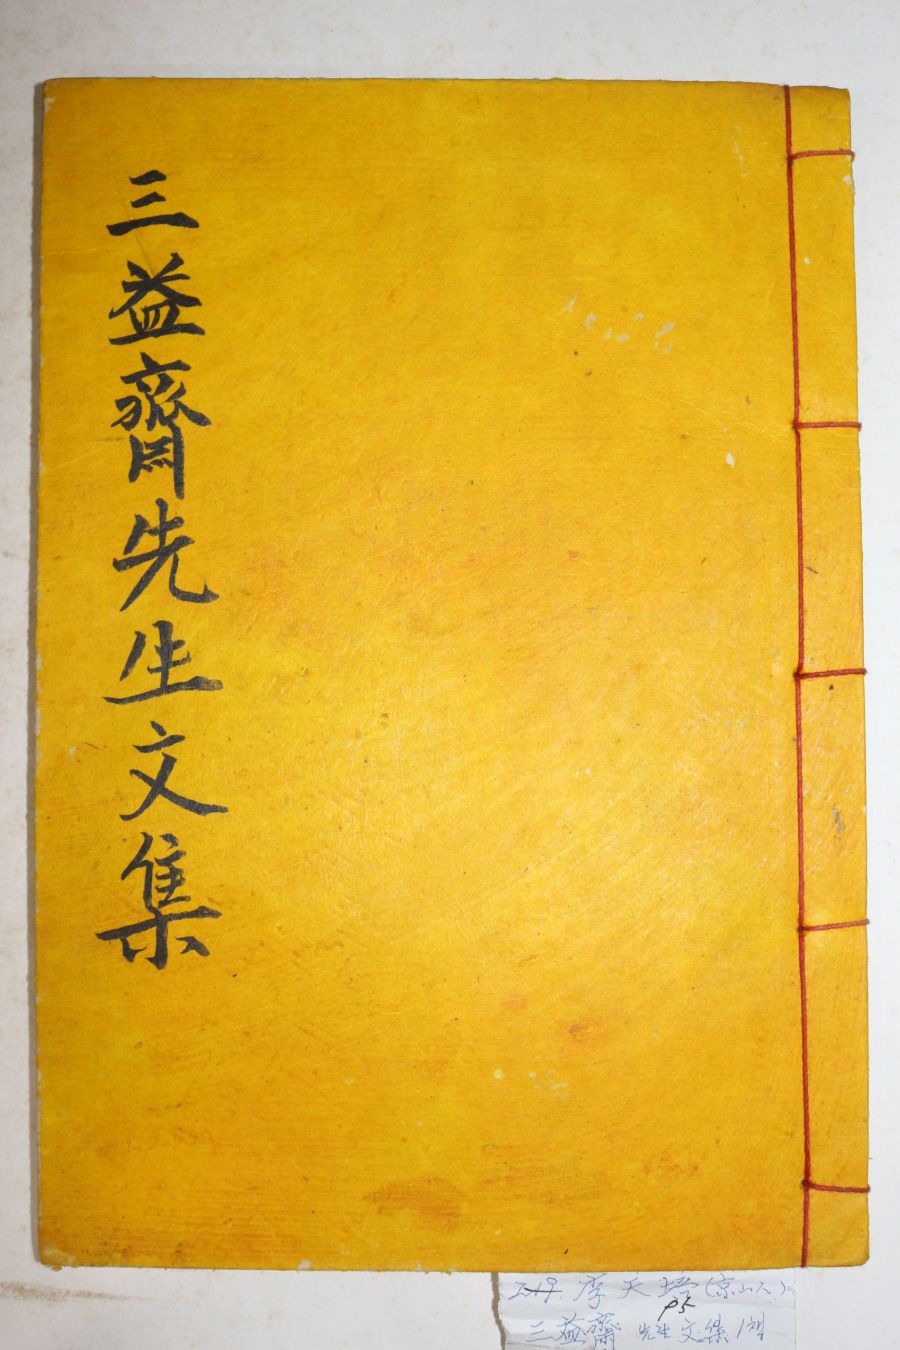 三益齋先生文集
219. 李天培 (京山人)
95
三益齋 先生文集 1책